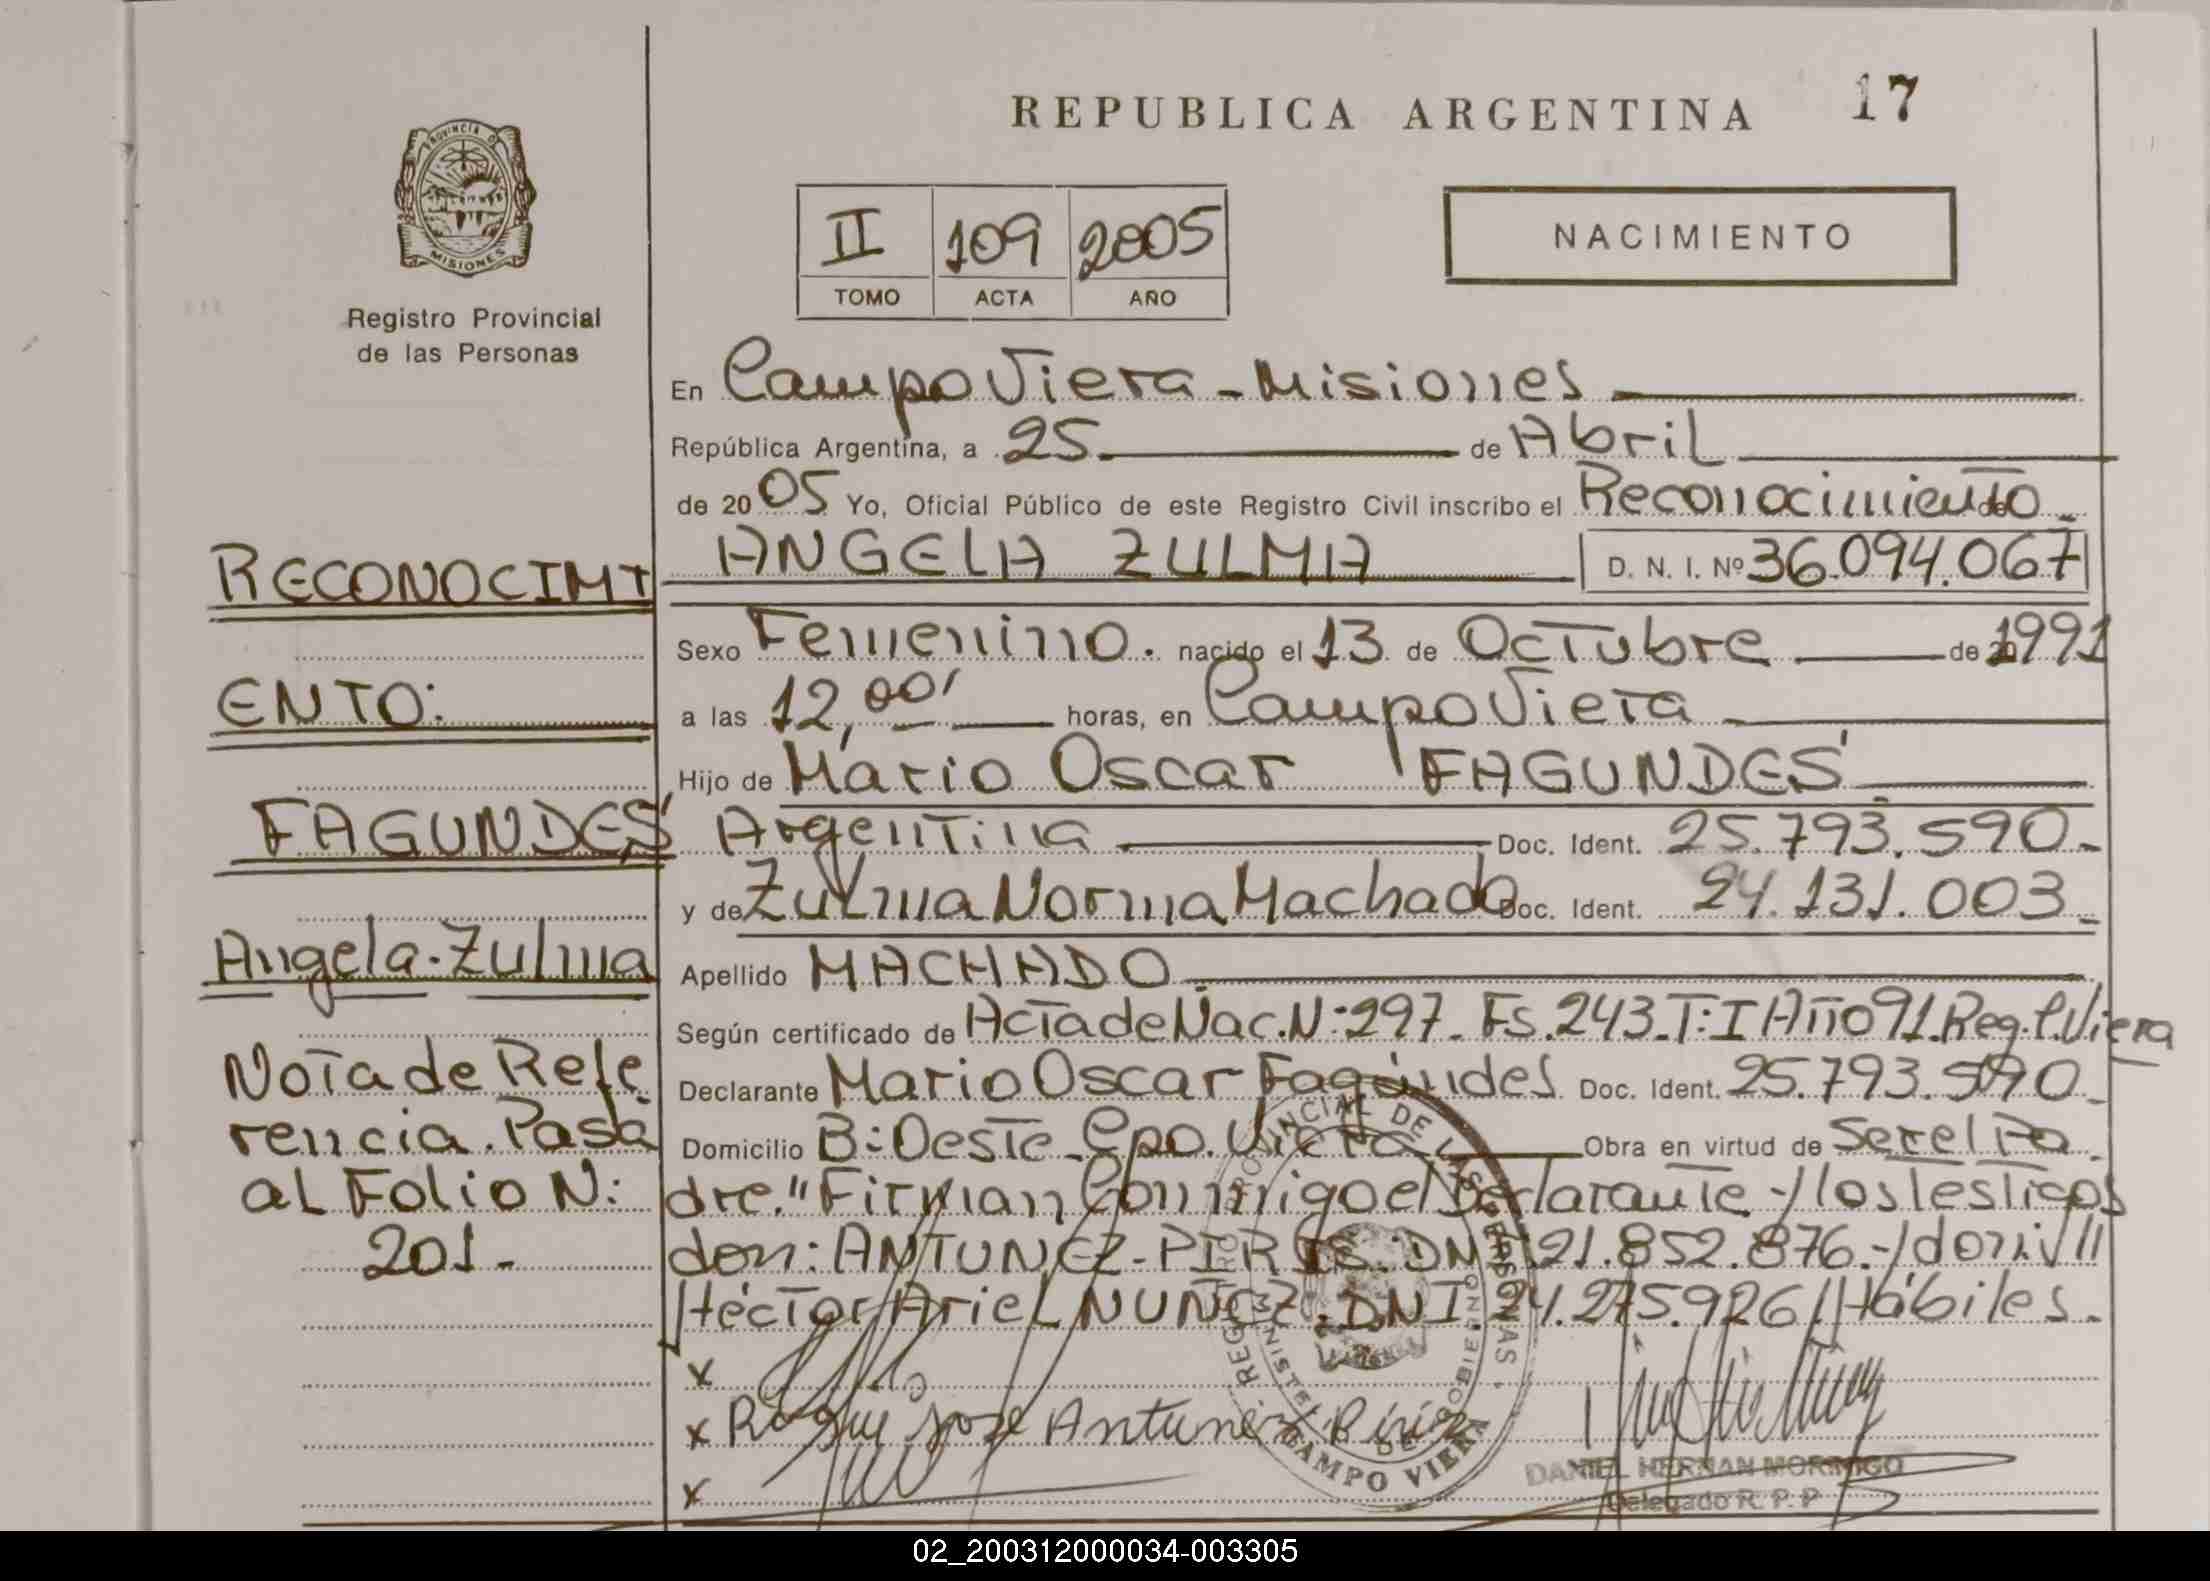 REPUBLICA ARGENTINA 17
PROVINCIA D
MISIONES
Registro Provincial
de las Personas
II 109 2005
TOMO ACTA AÑO
NACIMIENTO
En Campo Viera - Misiones
República Argentina, a 25 de Abril
de 2005 Yo, Oficial Público de este Registro Civil inscribo el Reconocimiento
ANGELA ZULMA D. N. I. Nº 36.094.067
Sexo Femenino. nacido el 13 de Octubre de 1991
a las 12,00' horas, en Campo Viera
Hijo de Mario Oscar FAGUNDES
Argentina Doc. Ident. 25.793.590.-
y de Zulma Norma Machado Doc. Ident. 24.131.003.-
Apellido MACHADO
Según certificado de Acta de Nac. N: 297. Fs. 243. T: I Año 91. Reg. C. Viera
Declarante Mario Oscar Fagundes Doc. Ident. 25.793.590.-
Domicilio B: Oeste. Cpo. Viera Obra en virtud de Ser el Pa
dre." Firman Conmigo el Declarante -/ los Testigos
don: ANTUNEZ-PIRIS. DNI 21.852.876.-/ don:
Héctor Ariel NUÑEZ. DNI. 24.275.926 // Hábiles.-
x
x Roque Jose Antunez Piriz
x
RECONOCIMI
ENTO:
FAGUNDES
Angela. Zulma
Nota de Refe
rencia. Pasa
al Folio N:
201.-
REGISTRO PROVINCIAL DE LAS PERSONAS
CAMPO VIERA
DANIEL HERNAN MORINIGO
Delegado R. P. P
02_200312000034-003305